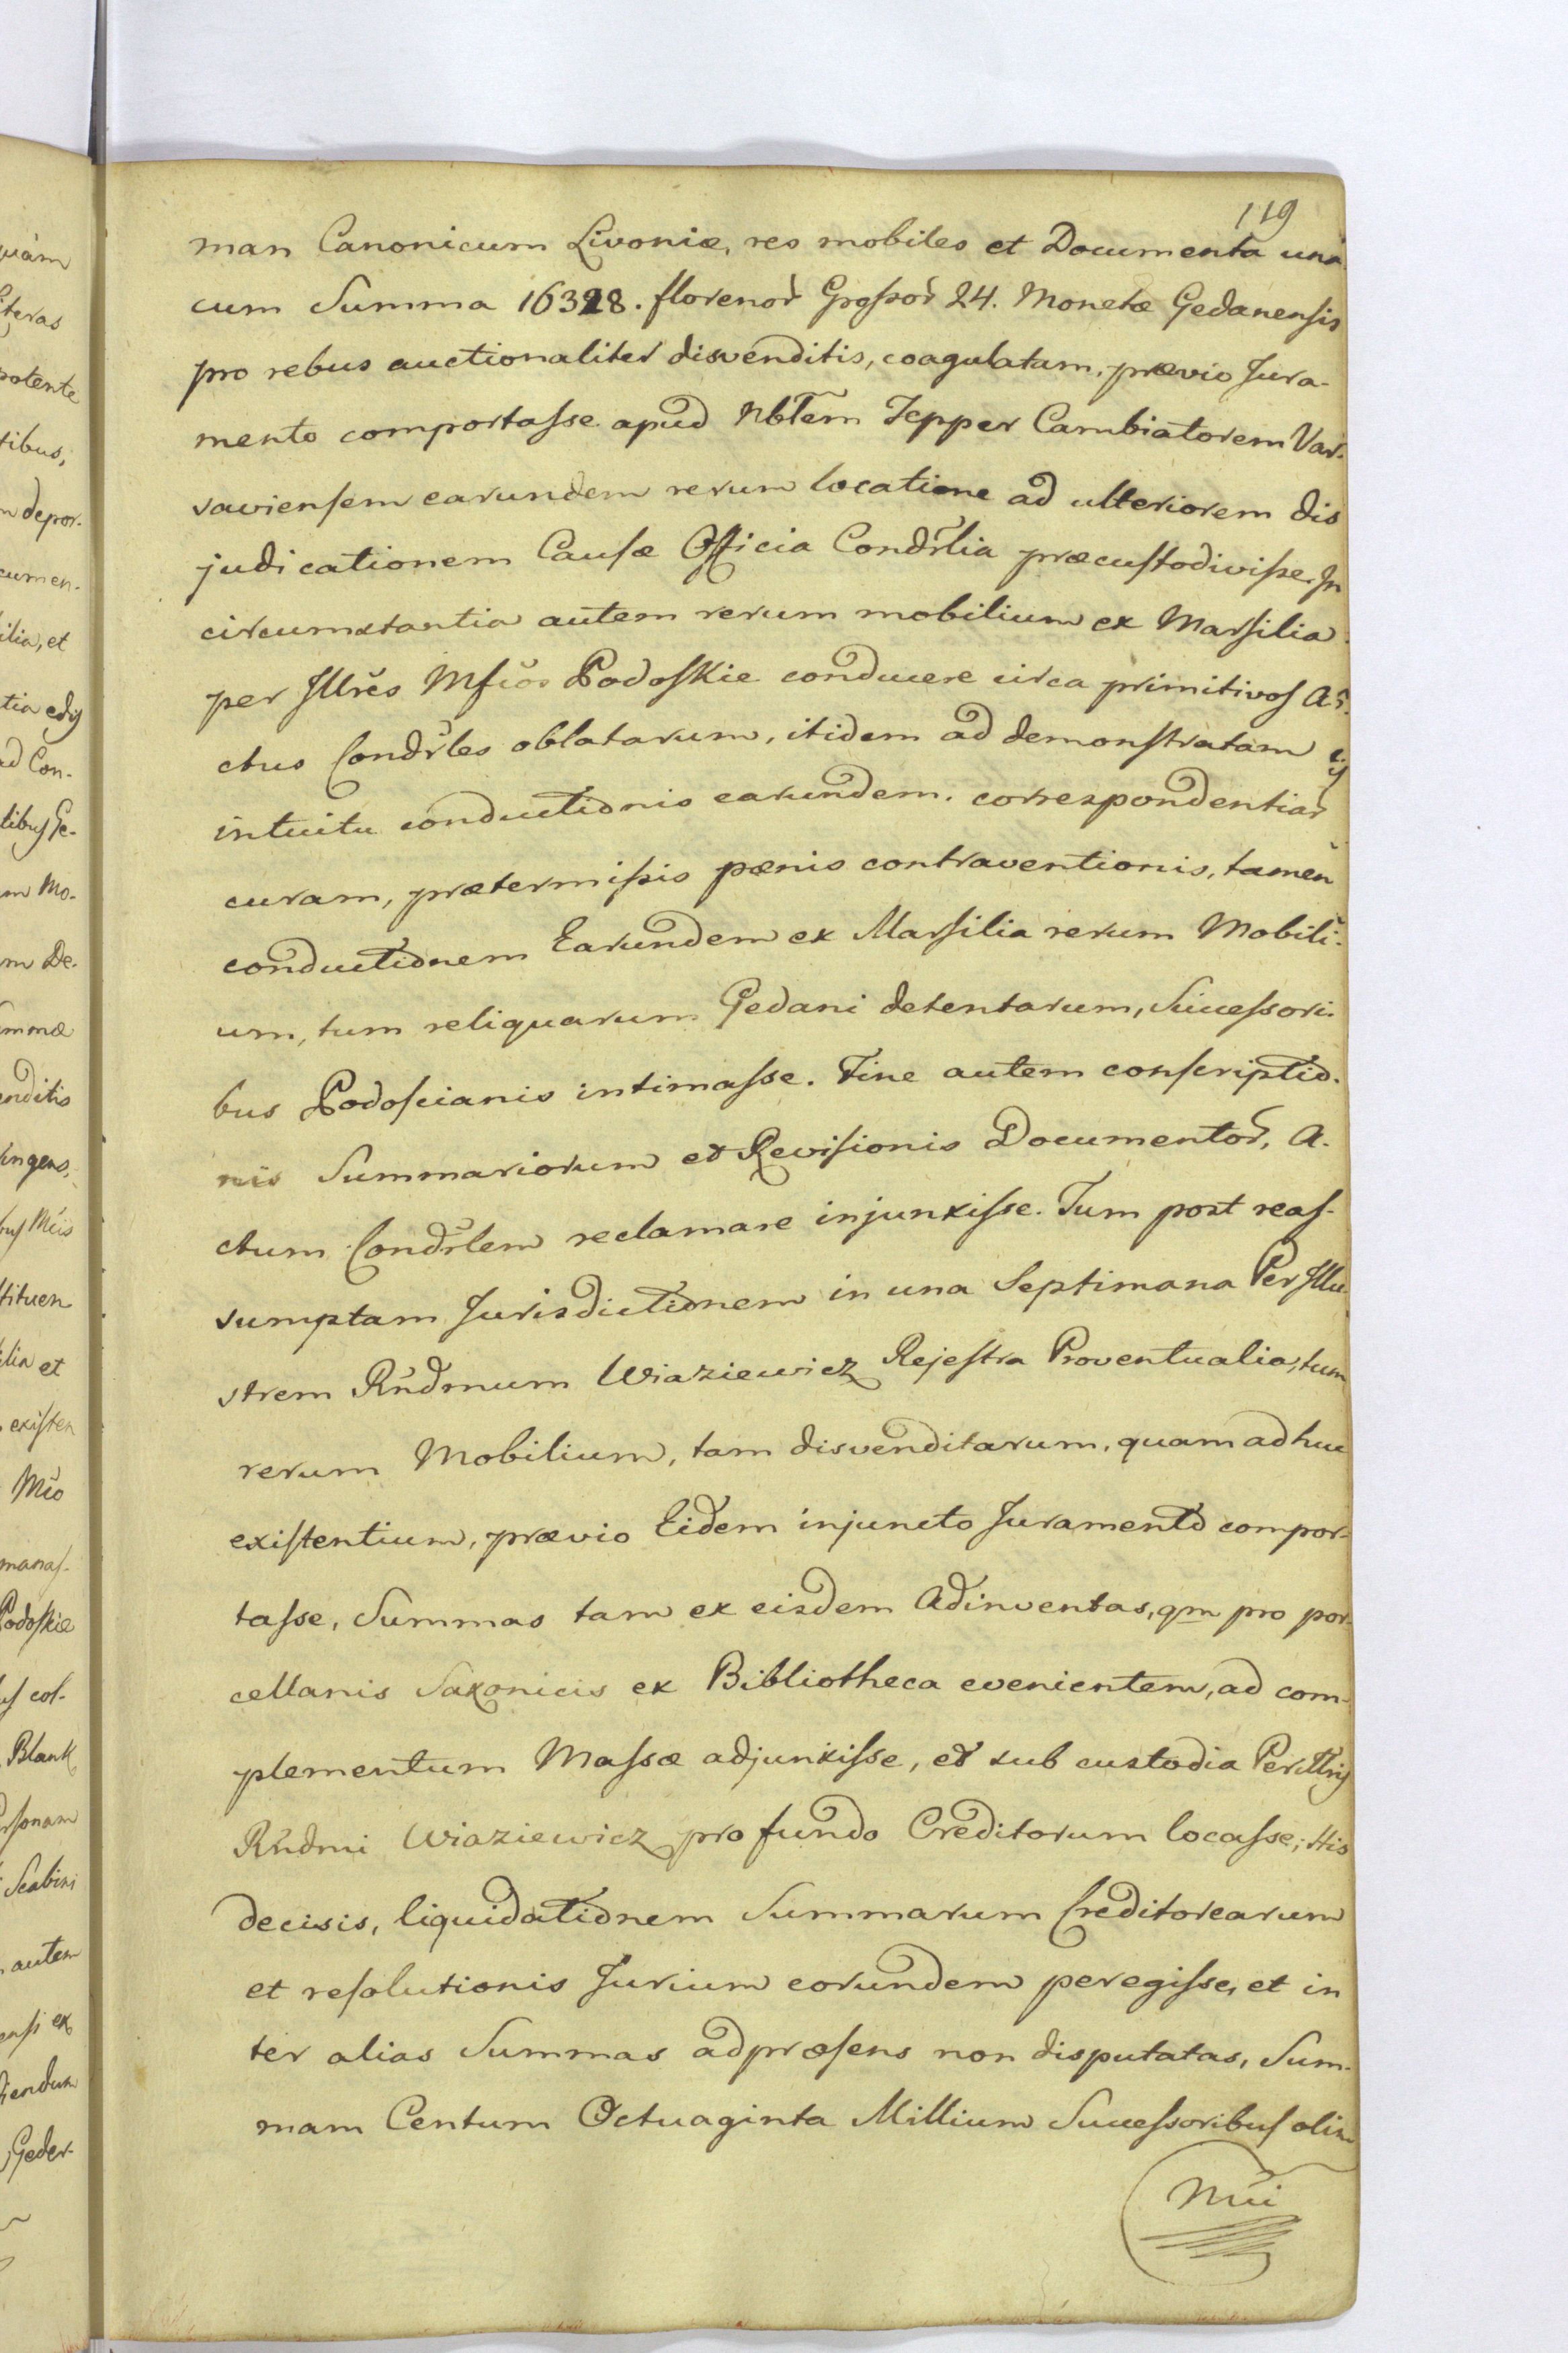 119
man Canonicum Livoniæ, res mobiles et Documenta una
cum Summa 16328. florenor̃ Groſsor̃ 24. Monetæ Gedanenſis
pro rebus auctionaliter disvenditis, coagulatam, prævio Jura-
mento comportaſse apud Nbłem Tepper Cambiatorem Var-
savienſem earundem rerum locatione ad ulteriorem dis
judicationem Cauſæ Officia Condr̃lia præcuſtodiviſse. In
circumstantia autem rerum mobilium ex Marſilia
per Jllrẽs Mficos Podoſkie conducere circa primitivoſ A-
ctus Condr̃les oblatarum, itidem ad demonſtratam
intuitu conductionis earundem. correspondentiar̃
curam, prætermiſsis pœnis contraventionis, tamen
conductionem Earundem ex Marſilia rerum Mobili-
um, tum reliquarum Gedani detentarum, Succeſsori-
bus Podoſcianis intimaſse. Fine autem conſcriptio-
nis Summariorum et Reviſionis Documentor̃, A-
ctum Condr̃lem reclamare injunxiſse. Tum post reaſ-
sumptam Jurisdictionem in una Septimana Per Jllu-
strem Rñdmum Wiaziewicz Rejeſtra Proventualia, tum
rerum Mobilium, tam disvenditarum, quam adhuc
exiſtentium, prævio Eidem injuncto Juramento compor-
taſse, Summas tam ex eisdem Adinventas, qm pro por-
cellanis Saxonicis ex Bibliotheca evenientem, ad com-
plementum Maſsæ adjunxiſse, et sub custodia Perillris
Rñdmi Wiaziewicz pro fundo Creditorum locaſse; His
decisis, liquidationem Summarum Creditorearum
et reſolutionis Jurium eorundem peregiſse, et in
ter alias Summas ad præſens non disputatas, Sum-
mam Centum Octuaginta Millium Succeſsoribuſ olim